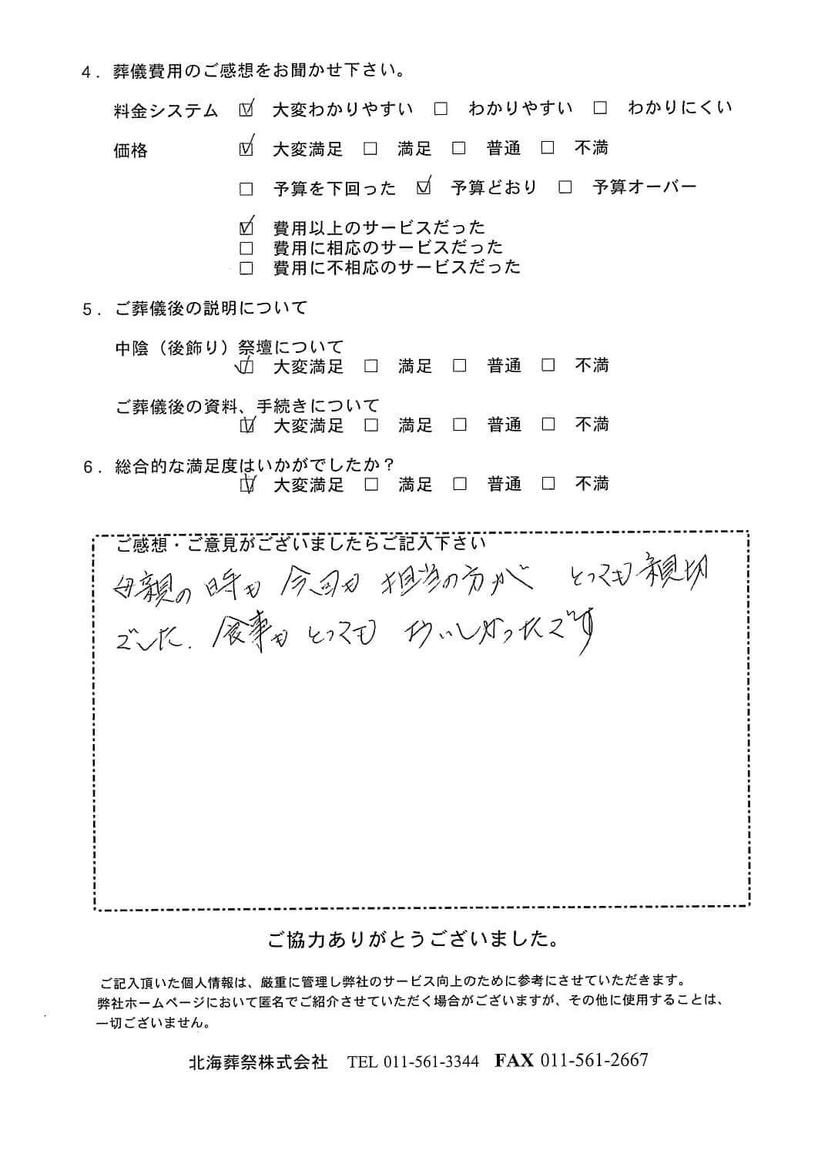 4．葬儀費用のご感想をお聞かせ下さい。
料金システム ☑ 大変わかりやすい □ わかりやすい □ わかりにくい
価格 ☑ 大変満足 □ 満足 □ 普通 □ 不満
□ 予算を下回った ☑ 予算どおり □ 予算オーバー
☑ 費用以上のサービスだった
□ 費用に相応のサービスだった
□ 費用に不相応のサービスだった
5．ご葬儀後の説明について
中陰（後飾り）祭壇について
☑ 大変満足 □ 満足 □ 普通 □ 不満
ご葬儀後の資料、手続きについて
☑ 大変満足 □ 満足 □ 普通 □ 不満
6．総合的な満足度はいかがでしたか？
☑ 大変満足 □ 満足 □ 普通 □ 不満
ご感想・ご意見がございましたらご記入下さい
母親の時も今回も担当の方がとっても親切
でした．食事もとってもおいしかったです
ご協力ありがとうございました。
ご記入頂いた個人情報は、厳重に管理し弊社のサービス向上のために参考にさせていただきます。
弊社ホームページにおいて匿名でご紹介させていただく場合がございますが、その他に使用することは、
一切ございません。
北海葬祭株式会社 TEL 011-561-3344 FAX 011-561-2667